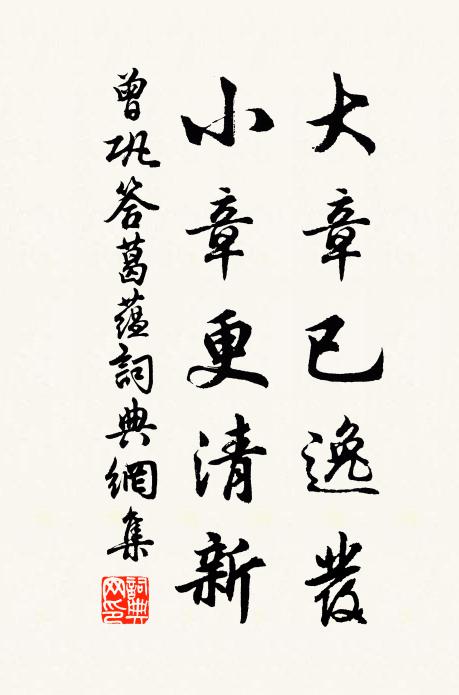 大章已逸發
小章更清新
曾鞏答葛蘊詞典網集
詞典網印